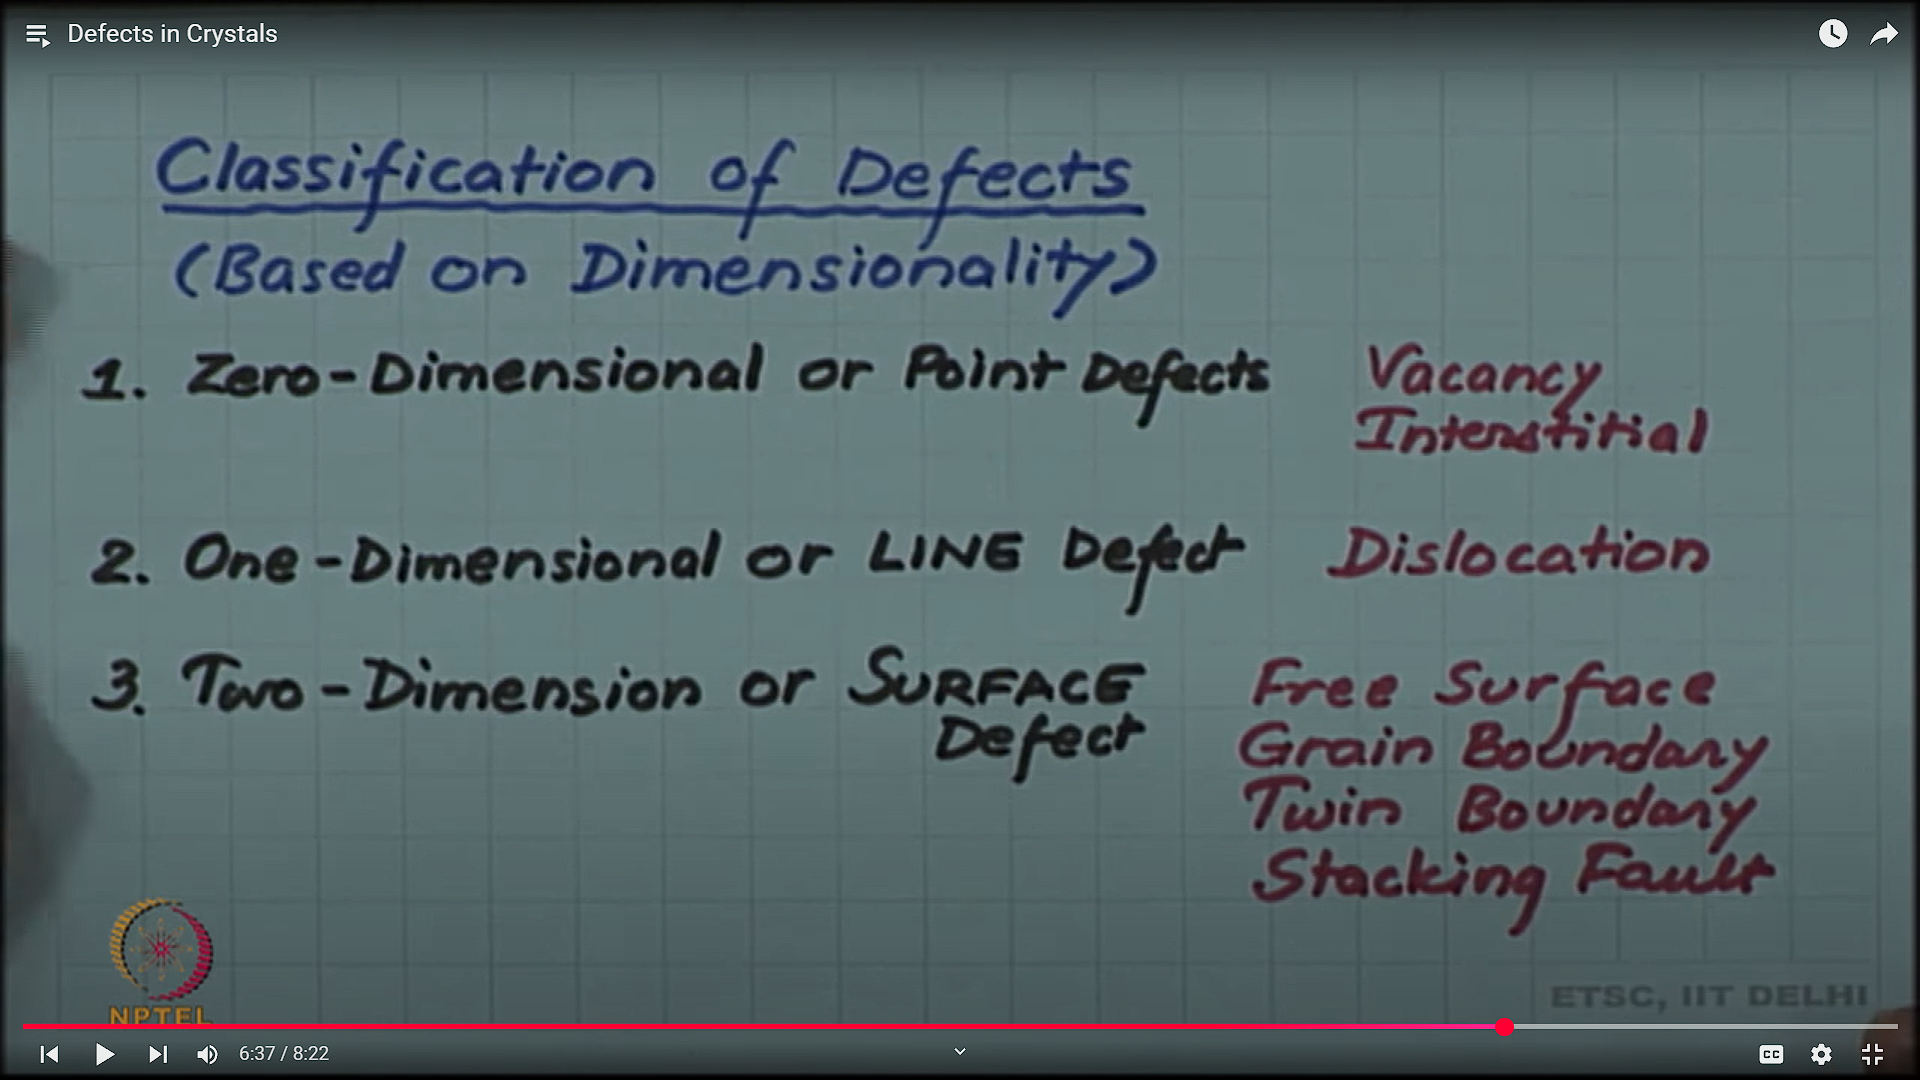 Defects in Crystals
Classification of Defects
(Based on Dimensionality)
1. Zero-Dimensional or Point Defects Vacancy
Interstitial
2. One-Dimensional or LINE Defect Dislocation
3. Two-Dimension or SURFACE Free Surface
Defect Grain Boundary
Twin Boundary
Stacking Fault
NPTEL
ETSC, IIT DELHI
6:37 / 8:22
CC